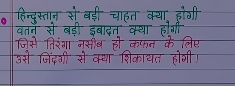 हिन्दुस्तान से बड़ी चाहत क्या होगी
वतन से बड़ी इबादत क्या होगी
जिसे तिरंगा नसीब हो कफन के लिए
उसे जिंदगी से क्या शिकायत होगी।